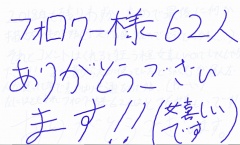 フォロワー様62人
ありがとうござい
ます!!(嬉しいです)